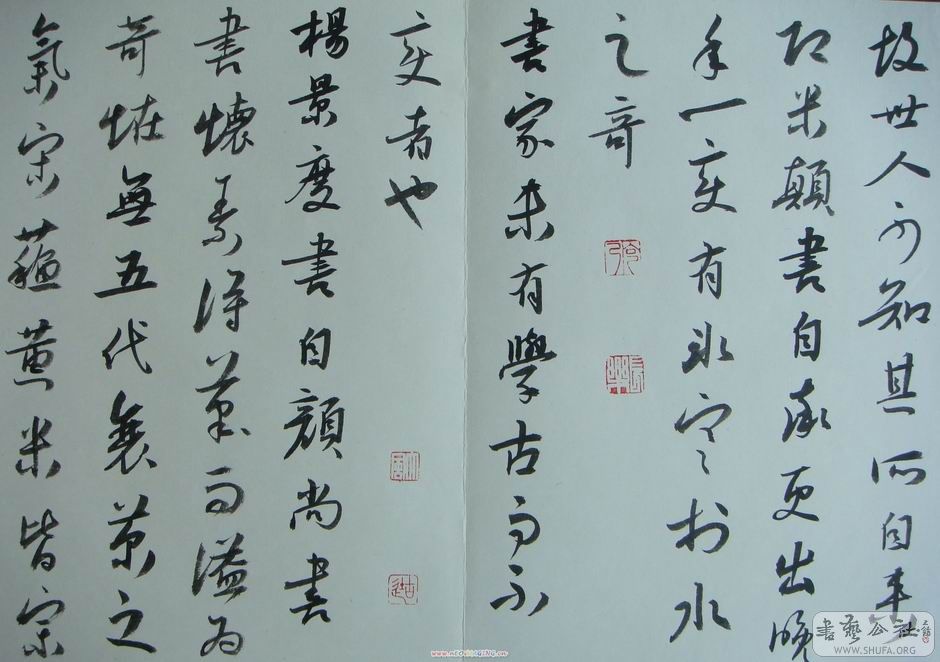 故世人不知其所自来
即米顛書自率更出晚
年一變有冰寒於水
之奇
書家未有學古而不
變者也
楊景度書自顏尚書
書懷素得筆而溢為
奇怪無五代衰苶之
氣宋蘇黄米皆宗
書藝公社
WWW.SHUFA.ORG